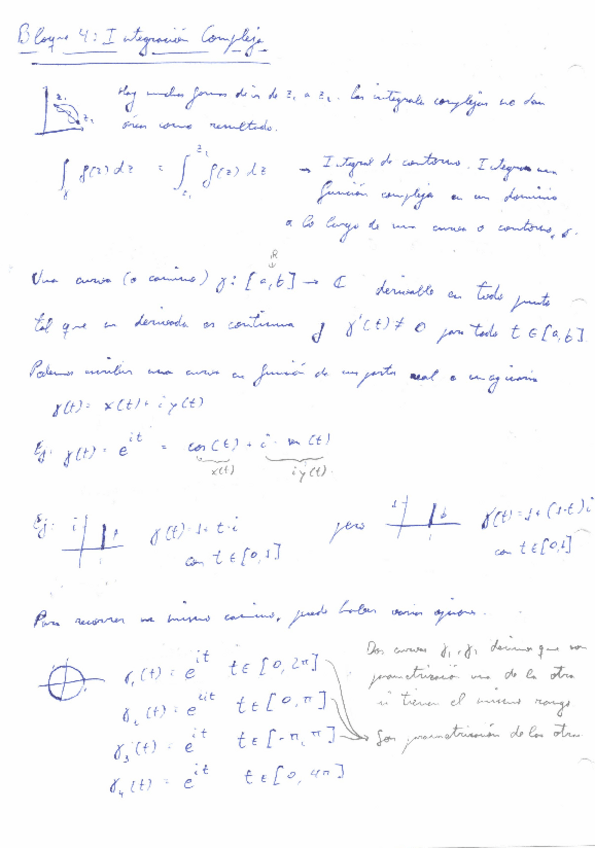 Bloque 4: Integración Compleja
Hay muchas formas de ir de z₁ a z₂. Las integrales complejas no dan
áreas como resultado.
z₁ z₂
∫_γ f(z) dz = ∫_{z₁}^{z₂} f(z) dz → Integral de contorno. Integramos una
función compleja en un dominio
a lo largo de una curva o contorno, γ.
ℝ
Una curva (o camino) γ: [a,b] → ℂ derivable en todo punto
tal que su derivada es continua y γ'(t) ≠ 0 para todo t ∈ [a,b]
Podemos escribir una curva en función de su parte real e imaginaria
γ(t) = x(t) + i y(t)
Ej: γ(t) = e^{it} = cos(t) + i · sen(t)
x(t) i y(t)
Ej: i 1 γ(t) = 1 + t·i pero 1 γ(t) = 1 + (1-t)i
con t ∈ [0,1] con t ∈ [0,1]
Para recorrer un mismo camino, puede haber varias opciones.
γ₁(t) = e^{it} t ∈ [0, 2π]
γ₂(t) = e^{2it} t ∈ [0, π]
γ₃(t) = e^{it} t ∈ [-π, π]
γ₄(t) = e^{it} t ∈ [0, 4π]
Dos curvas γ₁, γ₂ decimos que son
parametrización una de la otra
si tienen el mismo rango
Son parametrización de las otras